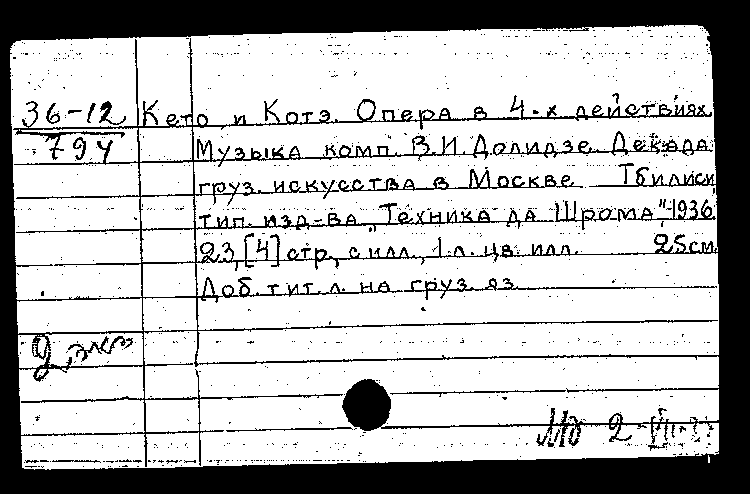 36-12
794
Кето и Котэ. Опера в 4-х действиях
Музыка комп. В.И. Долидзе. Декада
груз. искусства в Москве Тбилиси,
тип. изд-ва „Техника да Шрома", 1936
23, [4] стр., с илл., 1 л. цв. илл. 25см.
Доб. тит. л. на груз. яз.
2 экз
Мд 2